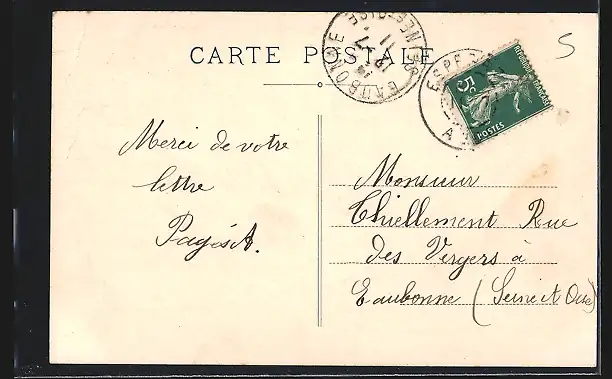 CARTE POSTALE
5
EAUBONNE
Sne-ET-OISE
ESPE
5c
POSTES
Merci de votre
lettre
PagésA.
Monsieur
Thiellement Rue
des Vergers à
Eaubonne (Seine et Oise)